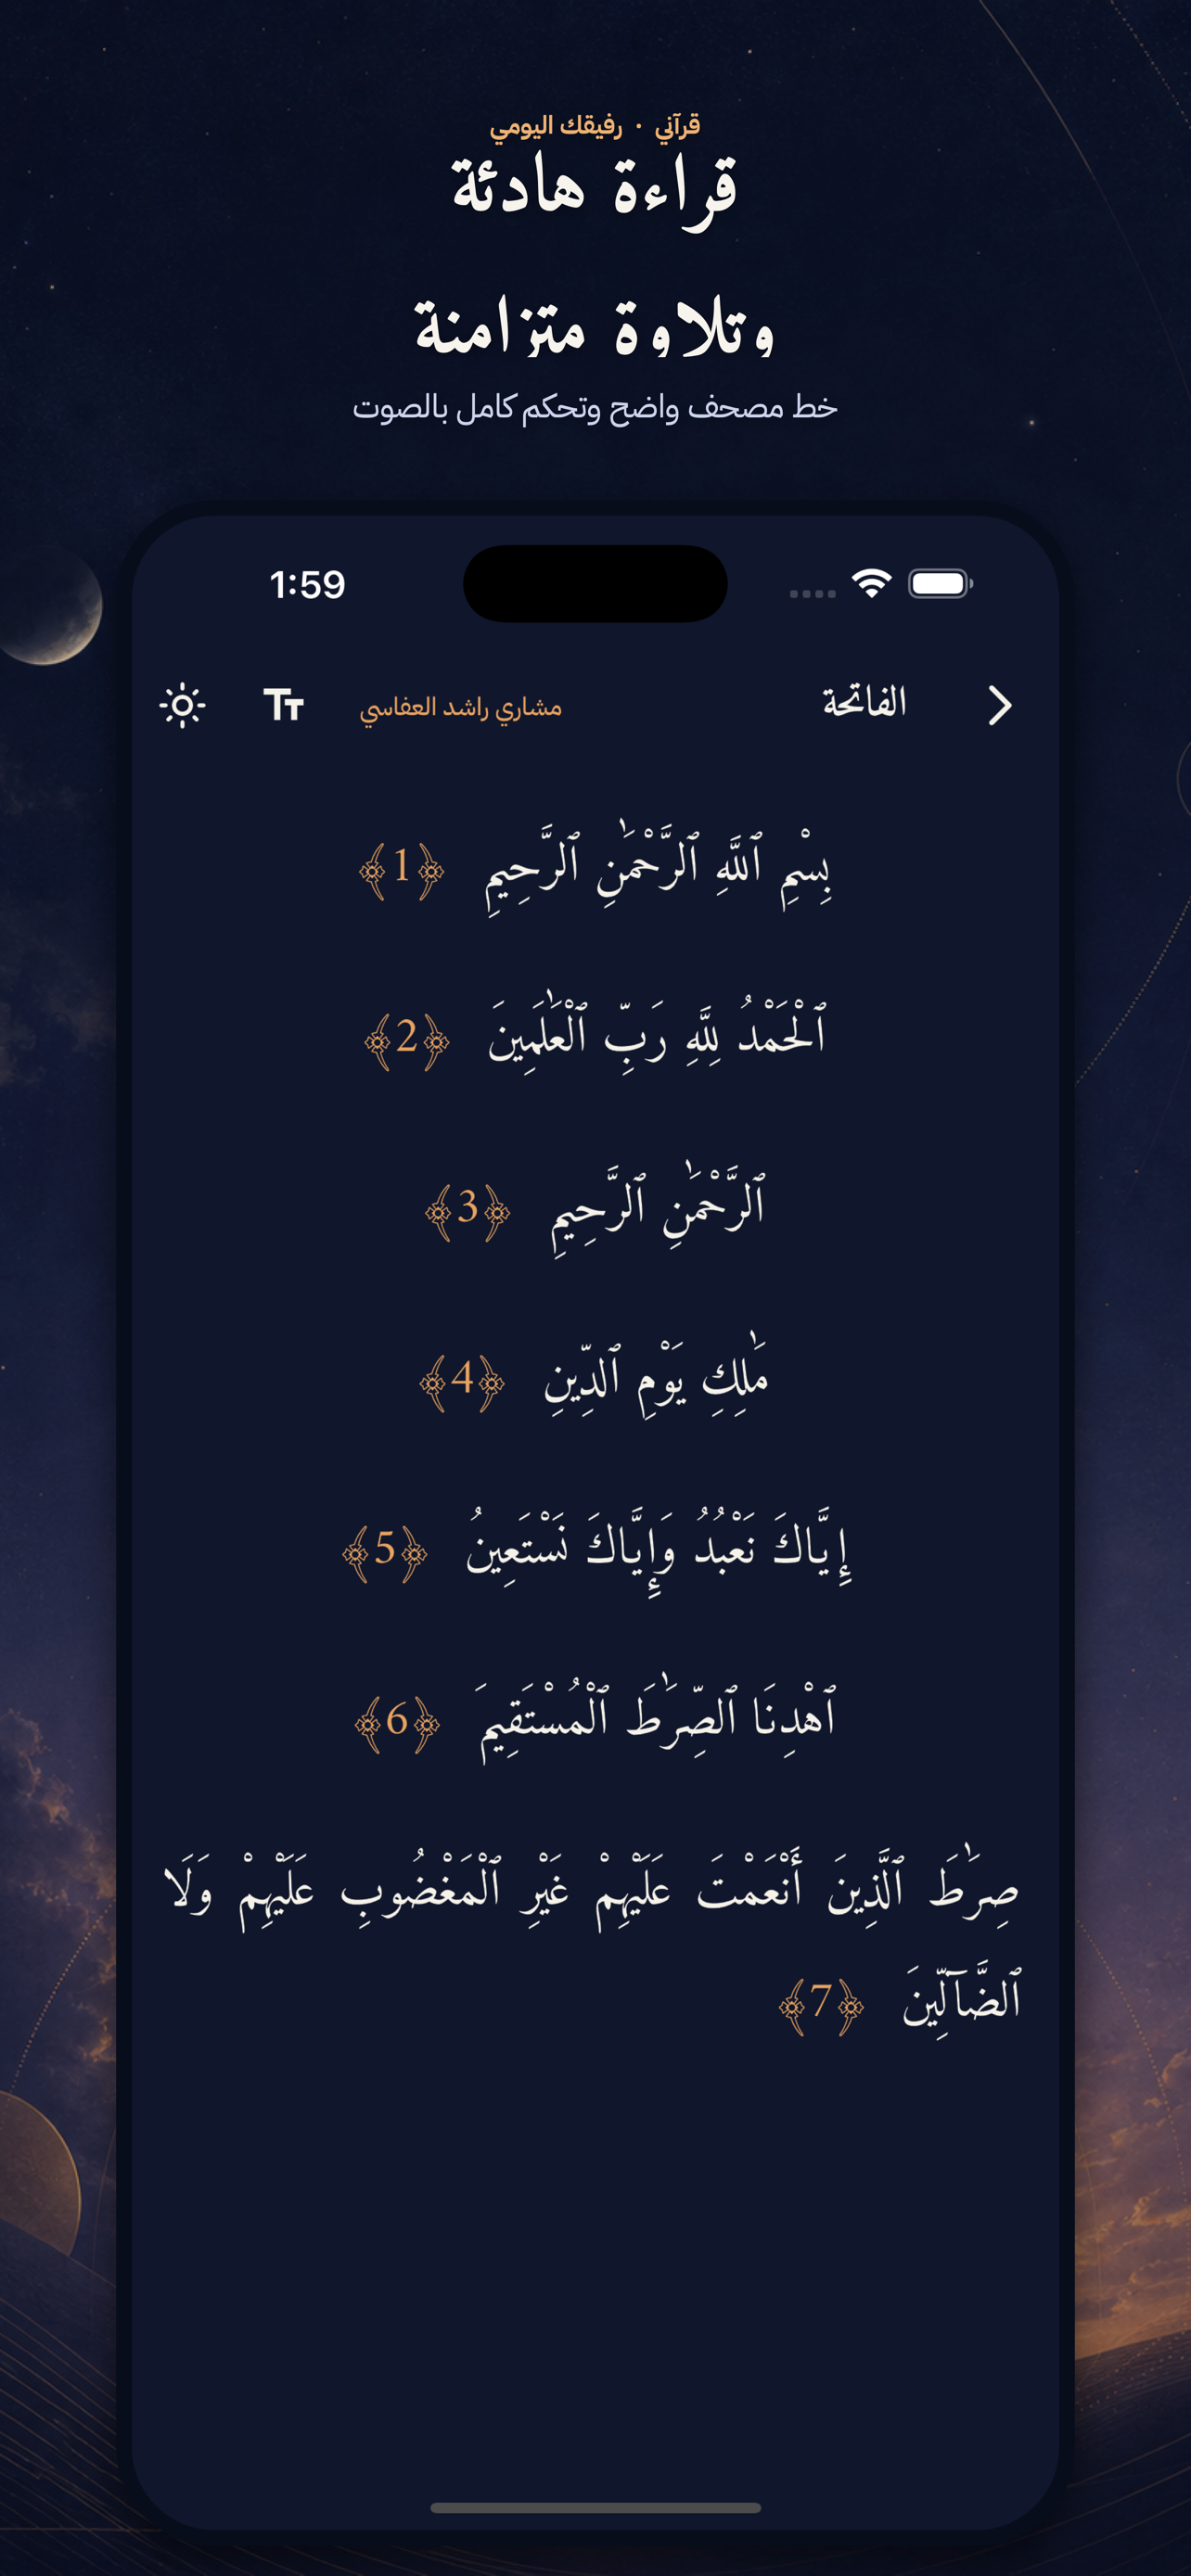 قرآني · رفيقك اليومي
قراءة هادئة
وتلاوة متزامنة
خط مصحف واضح وتحكم كامل بالصوت
1:59
الفاتحة مشاري راشد العفاسي TT
بِسْمِ ٱللَّهِ ٱلرَّحْمَٰنِ ٱلرَّحِيمِ ﴿1﴾
ٱلْحَمْدُ لِلَّهِ رَبِّ ٱلْعَٰلَمِينَ ﴿2﴾
ٱلرَّحْمَٰنِ ٱلرَّحِيمِ ﴿3﴾
مَٰلِكِ يَوْمِ ٱلدِّينِ ﴿4﴾
إِيَّاكَ نَعْبُدُ وَإِيَّاكَ نَسْتَعِينُ ﴿5﴾
ٱهْدِنَا ٱلصِّرَٰطَ ٱلْمُسْتَقِيمَ ﴿6﴾
صِرَٰطَ ٱلَّذِينَ أَنْعَمْتَ عَلَيْهِمْ غَيْرِ ٱلْمَغْضُوبِ عَلَيْهِمْ وَلَا
ٱلضَّآلِّينَ ﴿7﴾